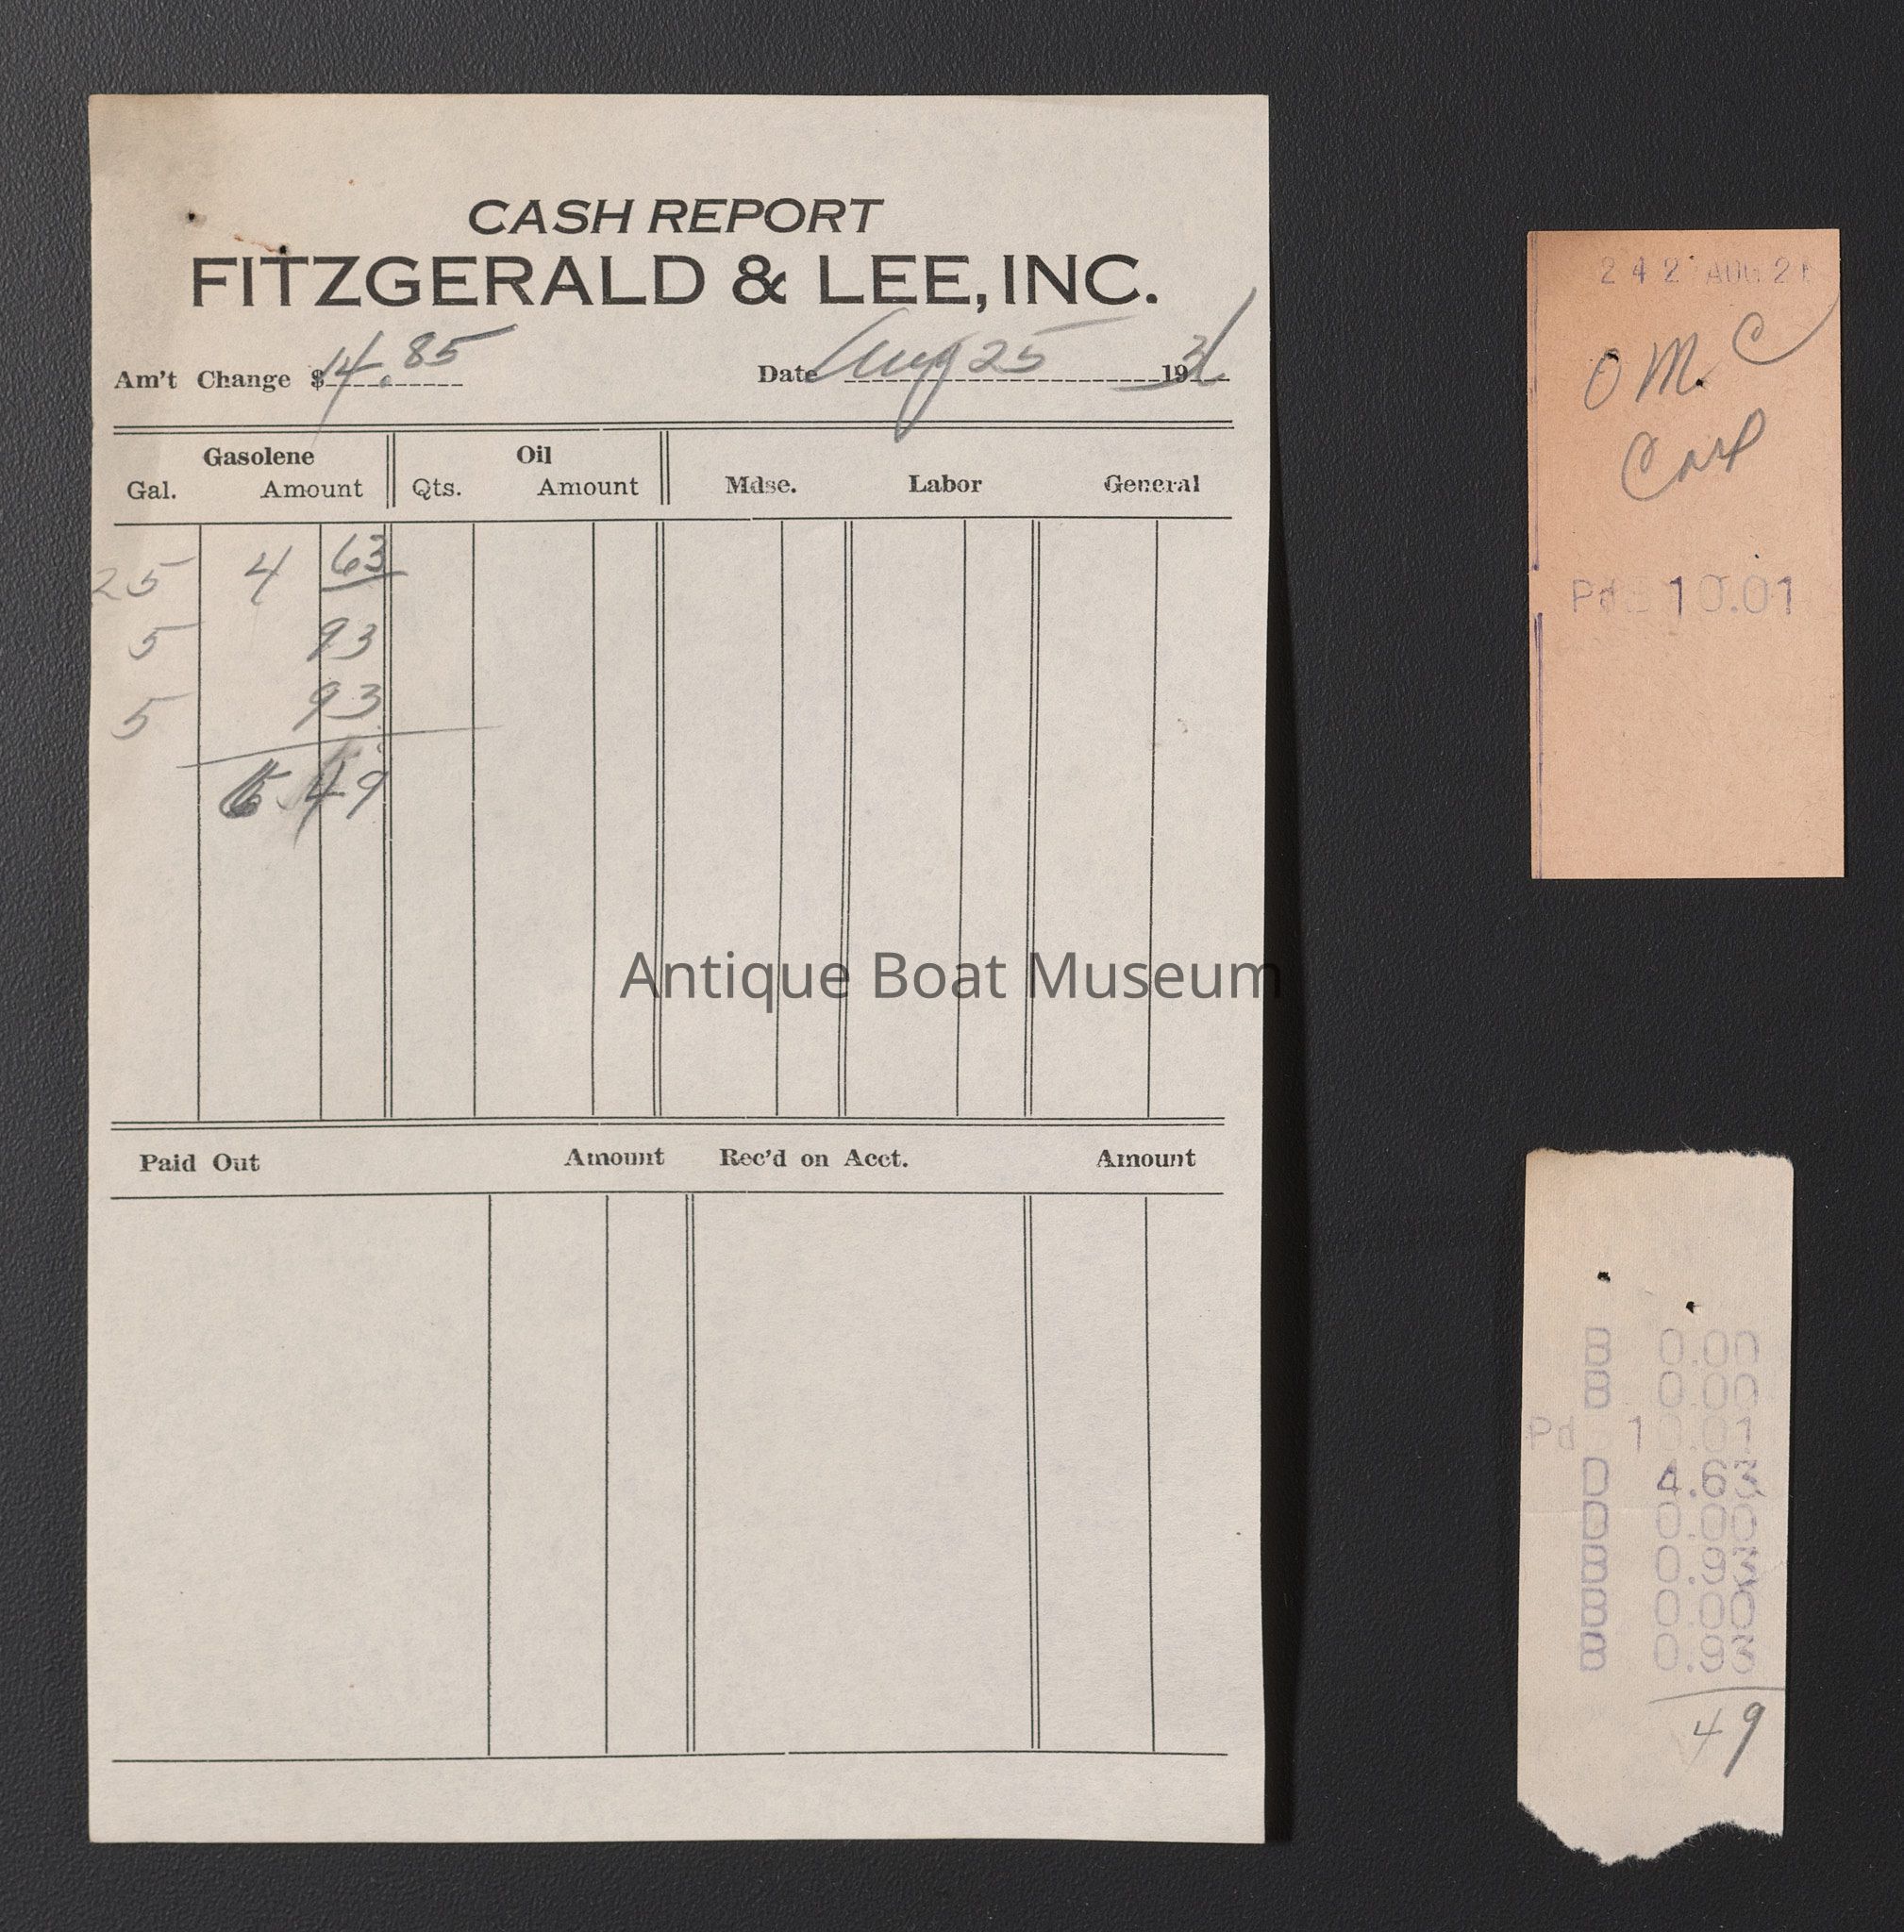 CASH REPORT
FITZGERALD & LEE, INC.
Am't Change $14.85 Date Aug 25 1931
Gasolene Oil
Gal. Amount Qts. Amount Mdse. Labor General
25 4 63
5 93
5 93
6 49
Paid Out Amount Rec'd on Acct. Amount
Antique Boat Museum
242 AUG 2
O M. C
Pd 10.01
B 0.00
B 0.00
Pd 10.01
D 4.63
D 0.00
B 0.93
B 0.00
B 0.93
49